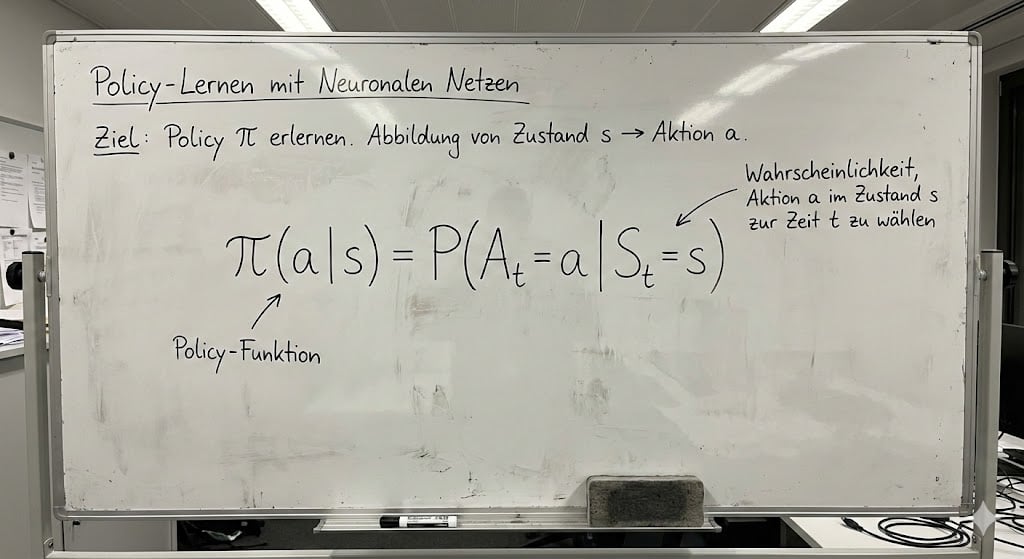 Policy-Lernen mit Neuronalen Netzen
Ziel: Policy π erlernen. Abbildung von Zustand s → Aktion a.
Wahrscheinlichkeit,
Aktion a im Zustand s
zur Zeit t zu wählen
π(a|s) = P(A_t = a | S_t = s)
Policy-Funktion